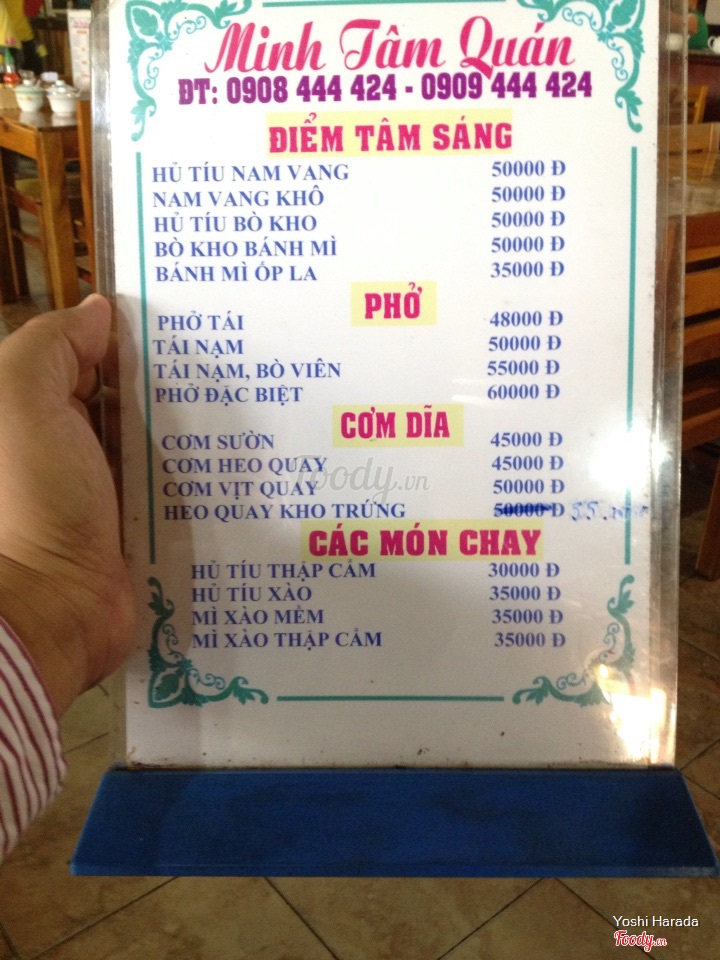 Minh Tâm Quán
ĐT: 0908 444 424 - 0909 444 424
ĐIỂM TÂM SÁNG
HỦ TÍU NAM VANG 50000 Đ
NAM VANG KHÔ 50000 Đ
HỦ TÍU BÒ KHO 50000 Đ
BÒ KHO BÁNH MÌ 50000 Đ
BÁNH MÌ ỐP LA 35000 Đ
PHỞ
PHỞ TÁI 48000 Đ
TÁI NẠM 50000 Đ
TÁI NẠM, BÒ VIÊN 55000 Đ
PHỞ ĐẶC BIỆT 60000 Đ
CƠM DĨA
CƠM SƯỜN 45000 Đ
CƠM HEO QUAY 45000 Đ
CƠM VỊT QUAY 50000 Đ
Foody.vn
HEO QUAY KHO TRỨNG 50000 Đ
CÁC MÓN CHAY
HỦ TÍU THẬP CẨM 30000 Đ
HỦ TÍU XÀO 35000 Đ
MÌ XÀO MỀM 35000 Đ
MÌ XÀO THẬP CẨM 35000 Đ
Yoshi Harada
Foody.vn